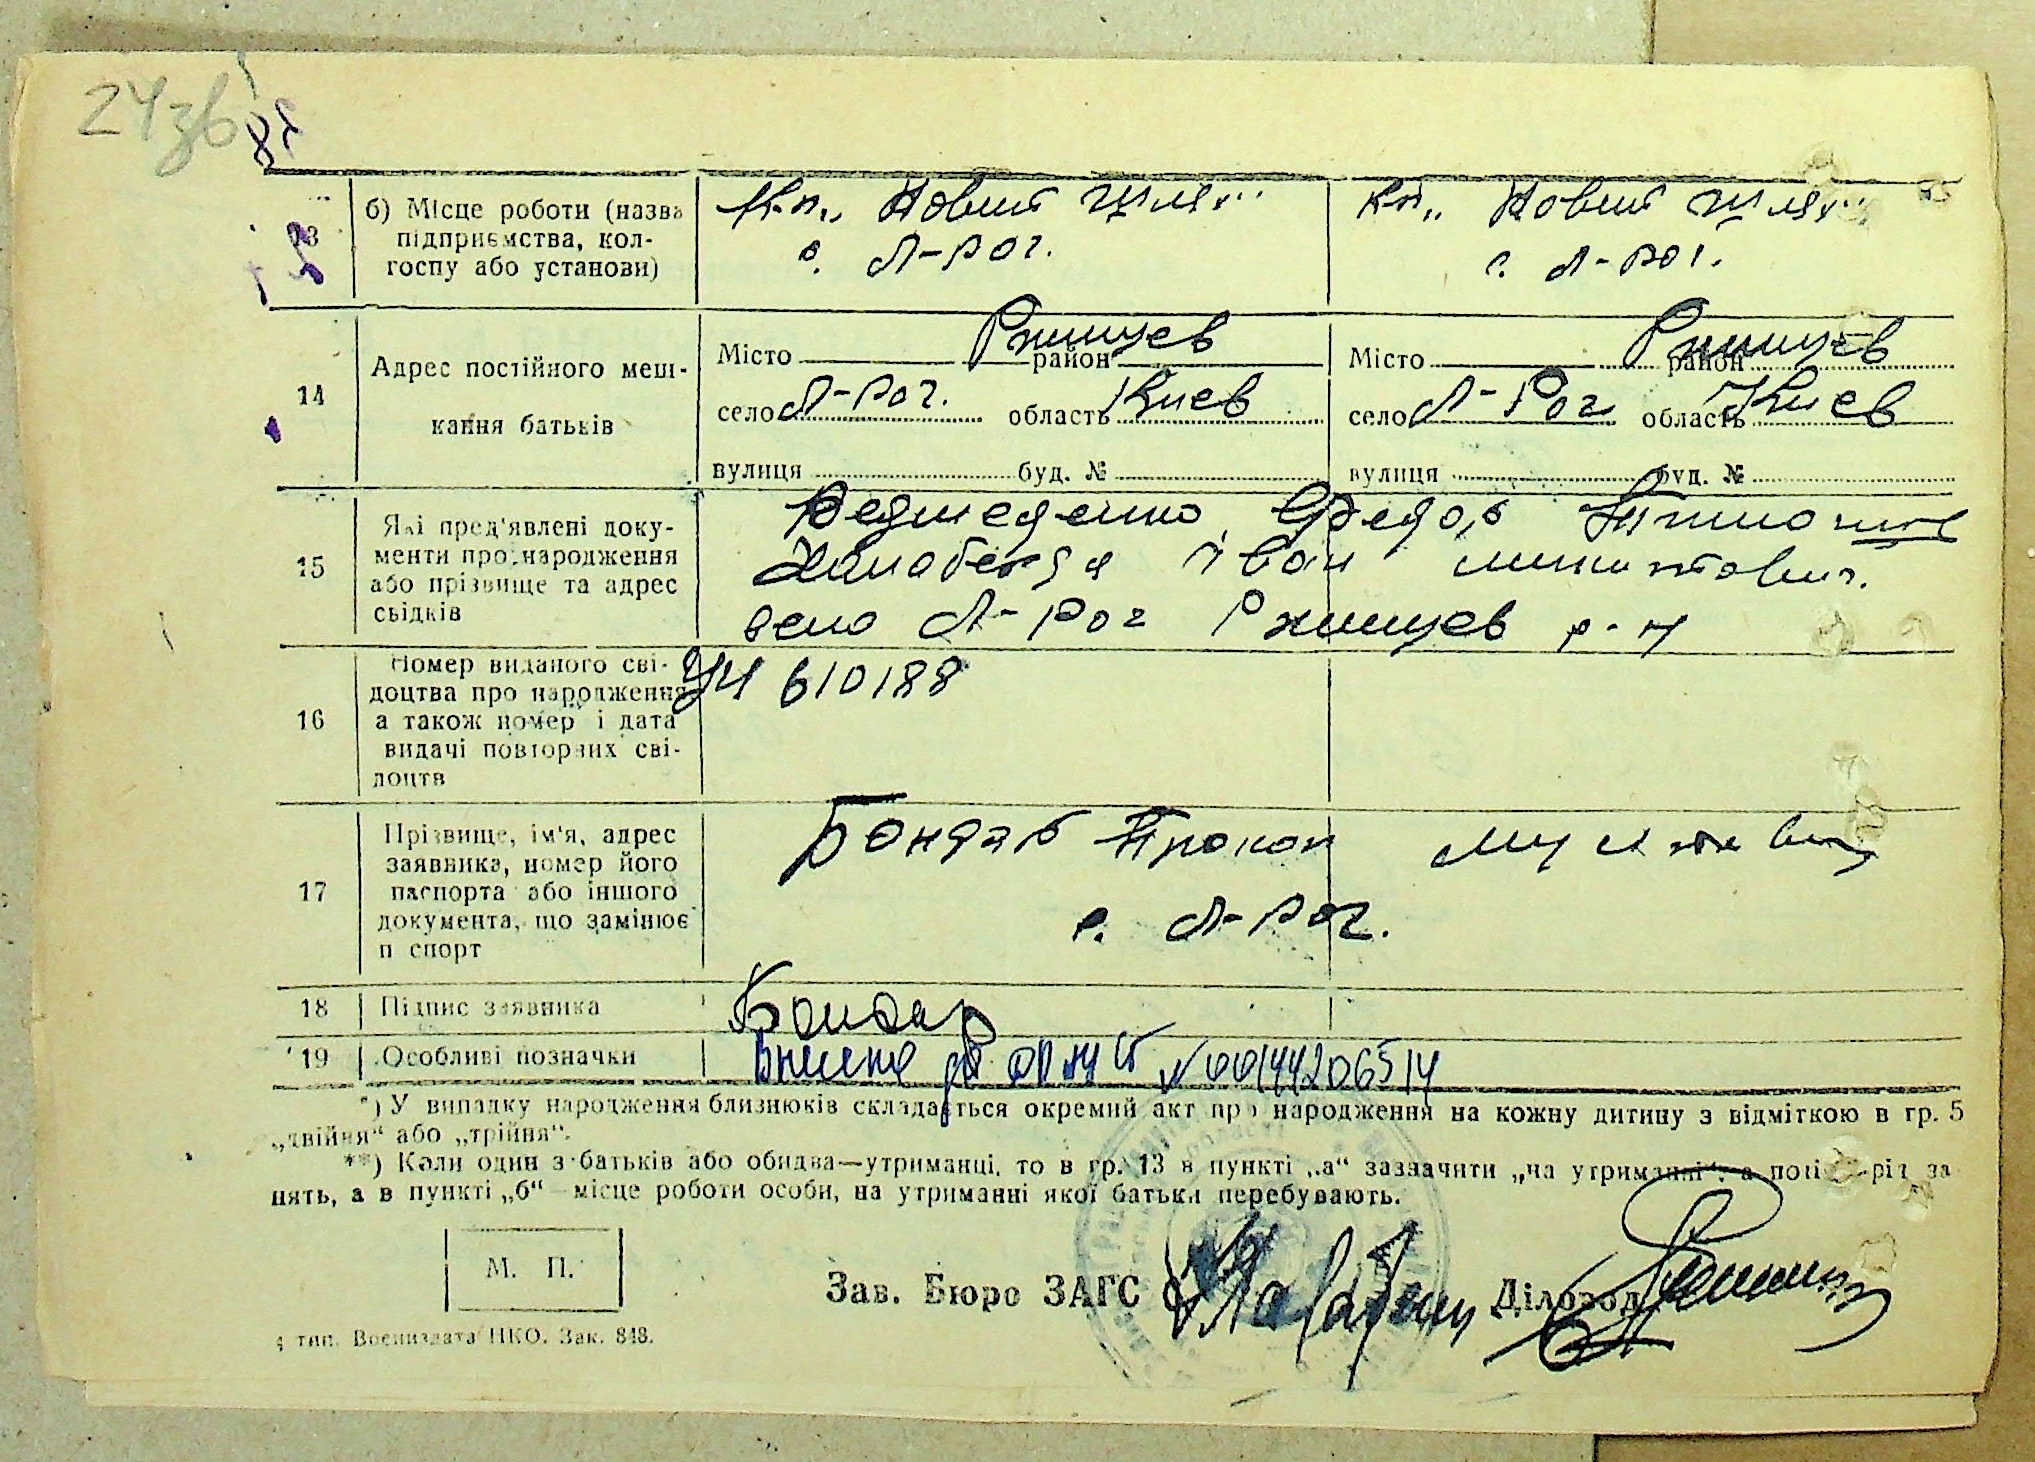 24зв
б) Місце роботи (назва Кп. „Новий шлях" Кп. „Новий шлях"
підприємства, кол-
госпу або установи)
с. Л-Рог. с. Л-Рог.
14 Адрес постійного меш-
кання батьків
Місто район Ржищев Місто район Ржищев
село Л-Рог. область Киев село Л-Рог область Киев
вулиця буд. № вулиця буд. №
15 Які пред'явлені доку-
менти про народження
або прізвище та адрес
свідків
Федор
Іван
село Л-Рог Ржищев р-н
16 Номер виданого сві-
доцтва про народження
а також номер і дата
видачі повторних сві-
доцтв
610188
17 Прізвище, ім'я, адрес
заявника, номер його
паспорта або іншого
документа, що замінює
п спорт
Бондар Прокоп
с. Л-Рог.
18 Підпис заявника Бондар
19 Особливі позначки Внесено до №00144206514
*) У випадку народження близнюків складається окремий акт про народження на кожну дитину з відміткою в гр. 5
„двійня" або „трійня".
**) Коли один з батьків або обидва—утриманці, то в гр. 13 в пункті „а" зазначити „на утриманні", а
нять, а в пункті „б" місце роботи особи, на утриманні якої батьки перебувають.
М. П.
Зав. Бюро ЗАГС Діловод
тип. Воениздата НКО. Зак. 848.